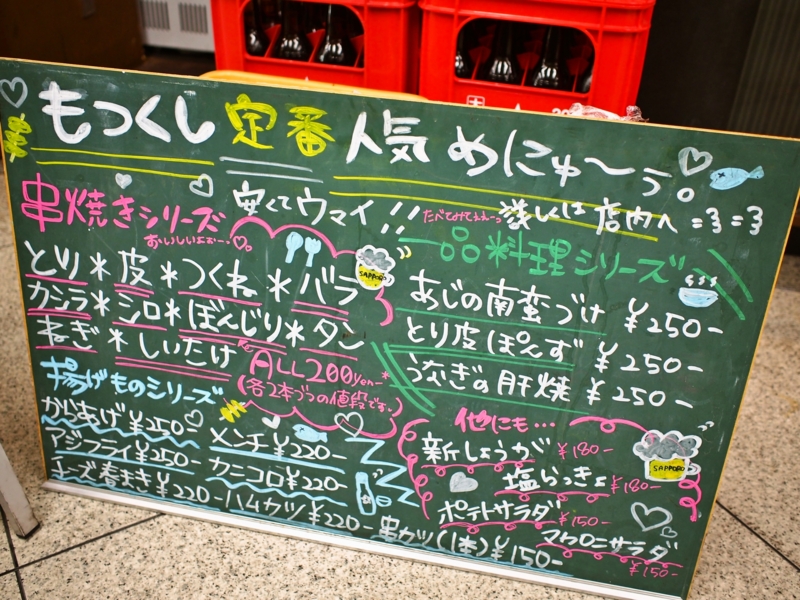 串もつくし 定番 人気 めにゅ〜う。
串焼きシリーズ
おいしいよぉ…
安くてウマイ!!
たべてみてねぇーっ
詳しくは店内へ =3=3
とり*皮*つくね*バラ
カシラ*シロ*ぼんじり*タン
ねぎ*しいたけ
ALL 200yen-*
(各2本づつの値段です。)
SAPPORO
揚げものシリーズ
からあげ¥250-
メンチ¥220-
アジフライ¥250-
カニコロ¥220-
チーズ春まき¥220-
ハムカツ¥220-
串カツ(1本)¥150-
一品料理シリーズ
あじの南蛮づけ ¥250-
とり皮ぽんず ¥250-
うなぎの肝焼 ¥250-
他にも…
新しょうが ¥180-
塩らっきょ ¥180-
ポテトサラダ ¥150-
マカロニサラダ ¥150-
SAPPORO